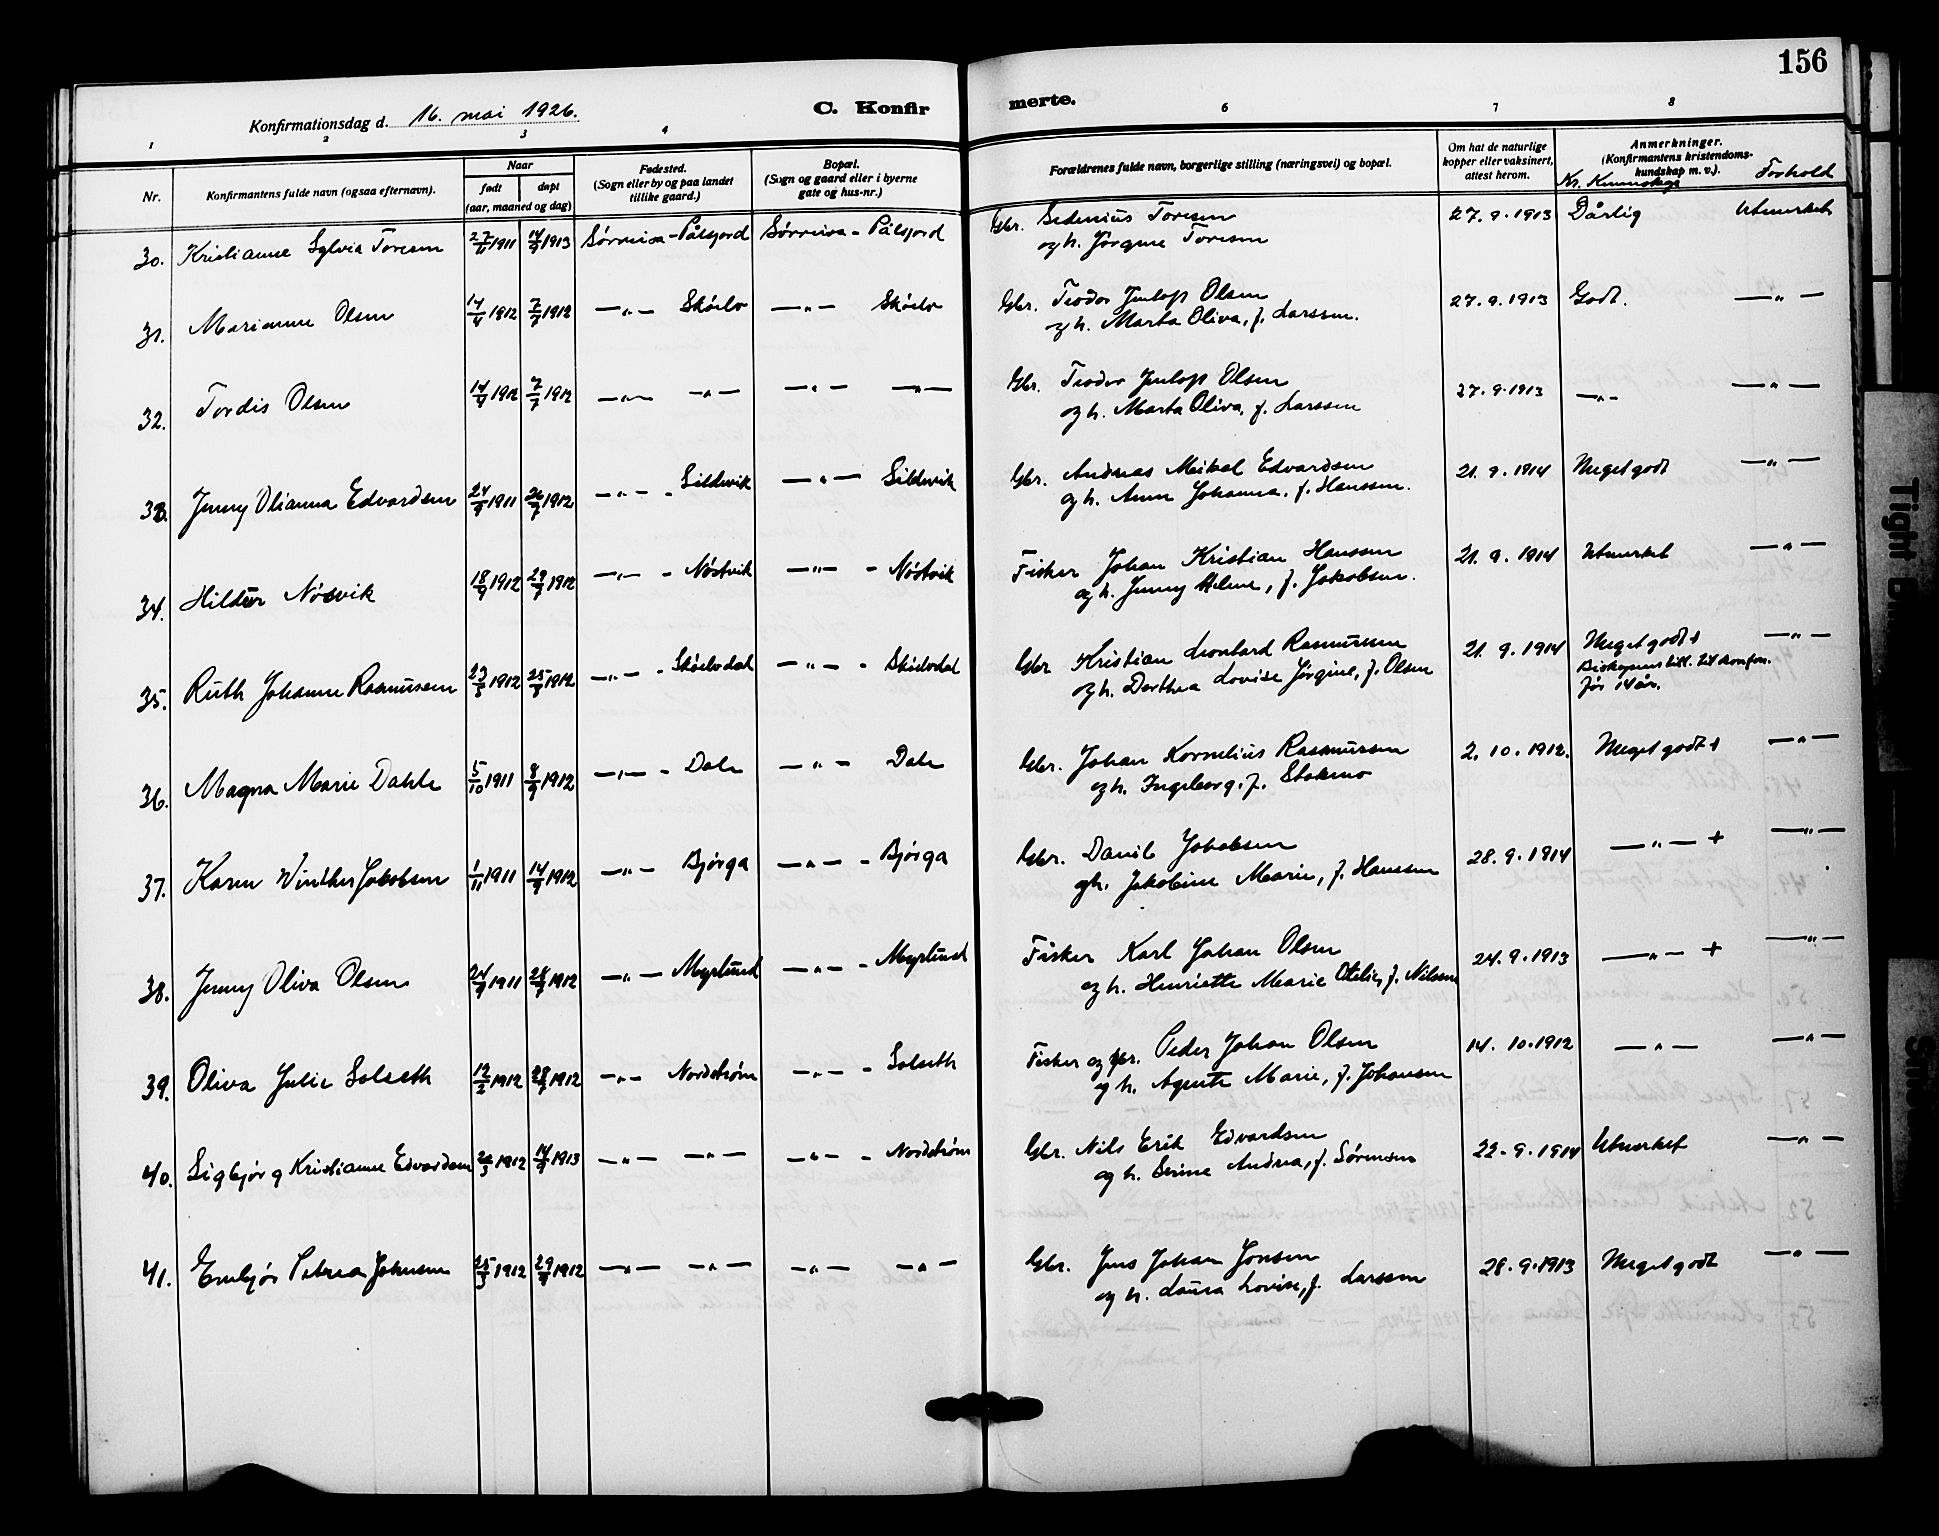 156
Konfirmationsdag d. 16. mai 1926.
C. Konfir
merte.
1 2 3 4 6 7 8
Nr.
Konfirmantens fulde navn (ogsaa efternavn).
Naar
født døpt
(aar, maaned og dag)
Fødested.
(Sogn eller by og paa landet
tillike gaard.)
Bopæl.
(Sogn og gaard eller i byerne
gate og hus-nr.)
Forældrenes fulde navn, borgerlige stilling (næringsvei) og bopæl.
Om hat de naturlige
kopper eller vaksinert,
attest herom.
Anmerkninger.
(Konfirmantens kristendoms-
kundskap m. v.).
Kr. Kunnskap Forhold
30. Kristianne Sylvia Toresen 27/6 1911 14/9 1913 Sørreisa - Pålsjord Sørreisa - Pålsjord Gbr. Sedenius Toresen 27.9.1913 Dårlig Utmerket
og h. Jørgine Toresen
31. Marianne Olsen 14/4 1912 7/7 1912 —„— Skøelv —„— Skøelv Gbr. Teodor Jentoft Olsen 27.9.1913 Godt. —„—
og h. Marta Oliva, f. Larssen.
32. Tordis Olsen 14/4 1912 7/7 1912 —„— —„— —„— —„— Gbr. Teodor Jentoft Olsen 27.9.1913 —„— —„—
og h. Marta Oliva, f. Larssen
33. Jenny Olianna Edvardsen 24/9 1911 26/7 1912 —„— - Sildvik —„— Sildvik Gbr. Andreas Mikal Edvardsen 21.9.1914 Meget godt —„—
og h. Anna Johanna, f. Hanssen.
34. Hildur Nøsvik 18/9 1912 29/7 1912 —„— - Nøstvik —„— - Nøstvik Fisker Johan Kristian Hanssen 21.9.1914 Utmerket —„—
og h. Jenny Helene, f. Jakobsen.
35. Ruth Johanne Rasmussen 23/5 1912 25/8 1912 —„— - Skøelvdal —„— - Skøelvdal Gbr Kristian Leonhard Rasmussen 21.9.1914 Meget godt + —„—
og h. Dorthea Lovise Jørgine, f. Olsen Biskopens till. til konfm.
før 14 år.
36. Magna Marie Dahle 5/10 1911 8/9 1912 —„— - Dale —„— Dale Gbr. Johan Kornelius Rasmussen 2.10.1912. Meget godt + —„—
og h. Ingeborg, f. Stakmo
37. Karen Winther Jakobsen 1/11 1911 14/9 1912 —„— Bjørga —„— - Bjørga Gbr. Danil Jakobsen 28.9.1914 —„— + —„—
og h. Jakobine Marie, f. Hanssen
38. Jenny Oliva Olsen 24/9 1911 28/7 1912 —„— Myrlund —„— - Myrlund Fisker Karl Johan Olsen 24.9.1913 —„— + —„—
og h. Henriette Marie Otelie, f. Nilssen
39. Oliva Julie Solseth 12/2 1912 28/7 1912 —„— Nordstrøm —„— - Solseth Fisker og gbr. Peder Johan Olsen 14.10.1912 —„— —„—
og h. Agnete Marie, f. Johansen
40. Sigbjørg Kristianne Edvardsen 1912 14/9 1913 —„— —„— —„— - Nordstrøm Gbr. Nils Erik Edvardsen 22.9.1914 Utmerket —„—
og h. Serine Andrea, f. Sørensen
41. Petrea Johnsen 25/5 1912 29/9 1912 —„— —„— —„— —„— Gbr. Jens Johan Jonsen 28.9.1913 Meget godt —„—
og h. Laura Lovise, f. Larssen
Tight